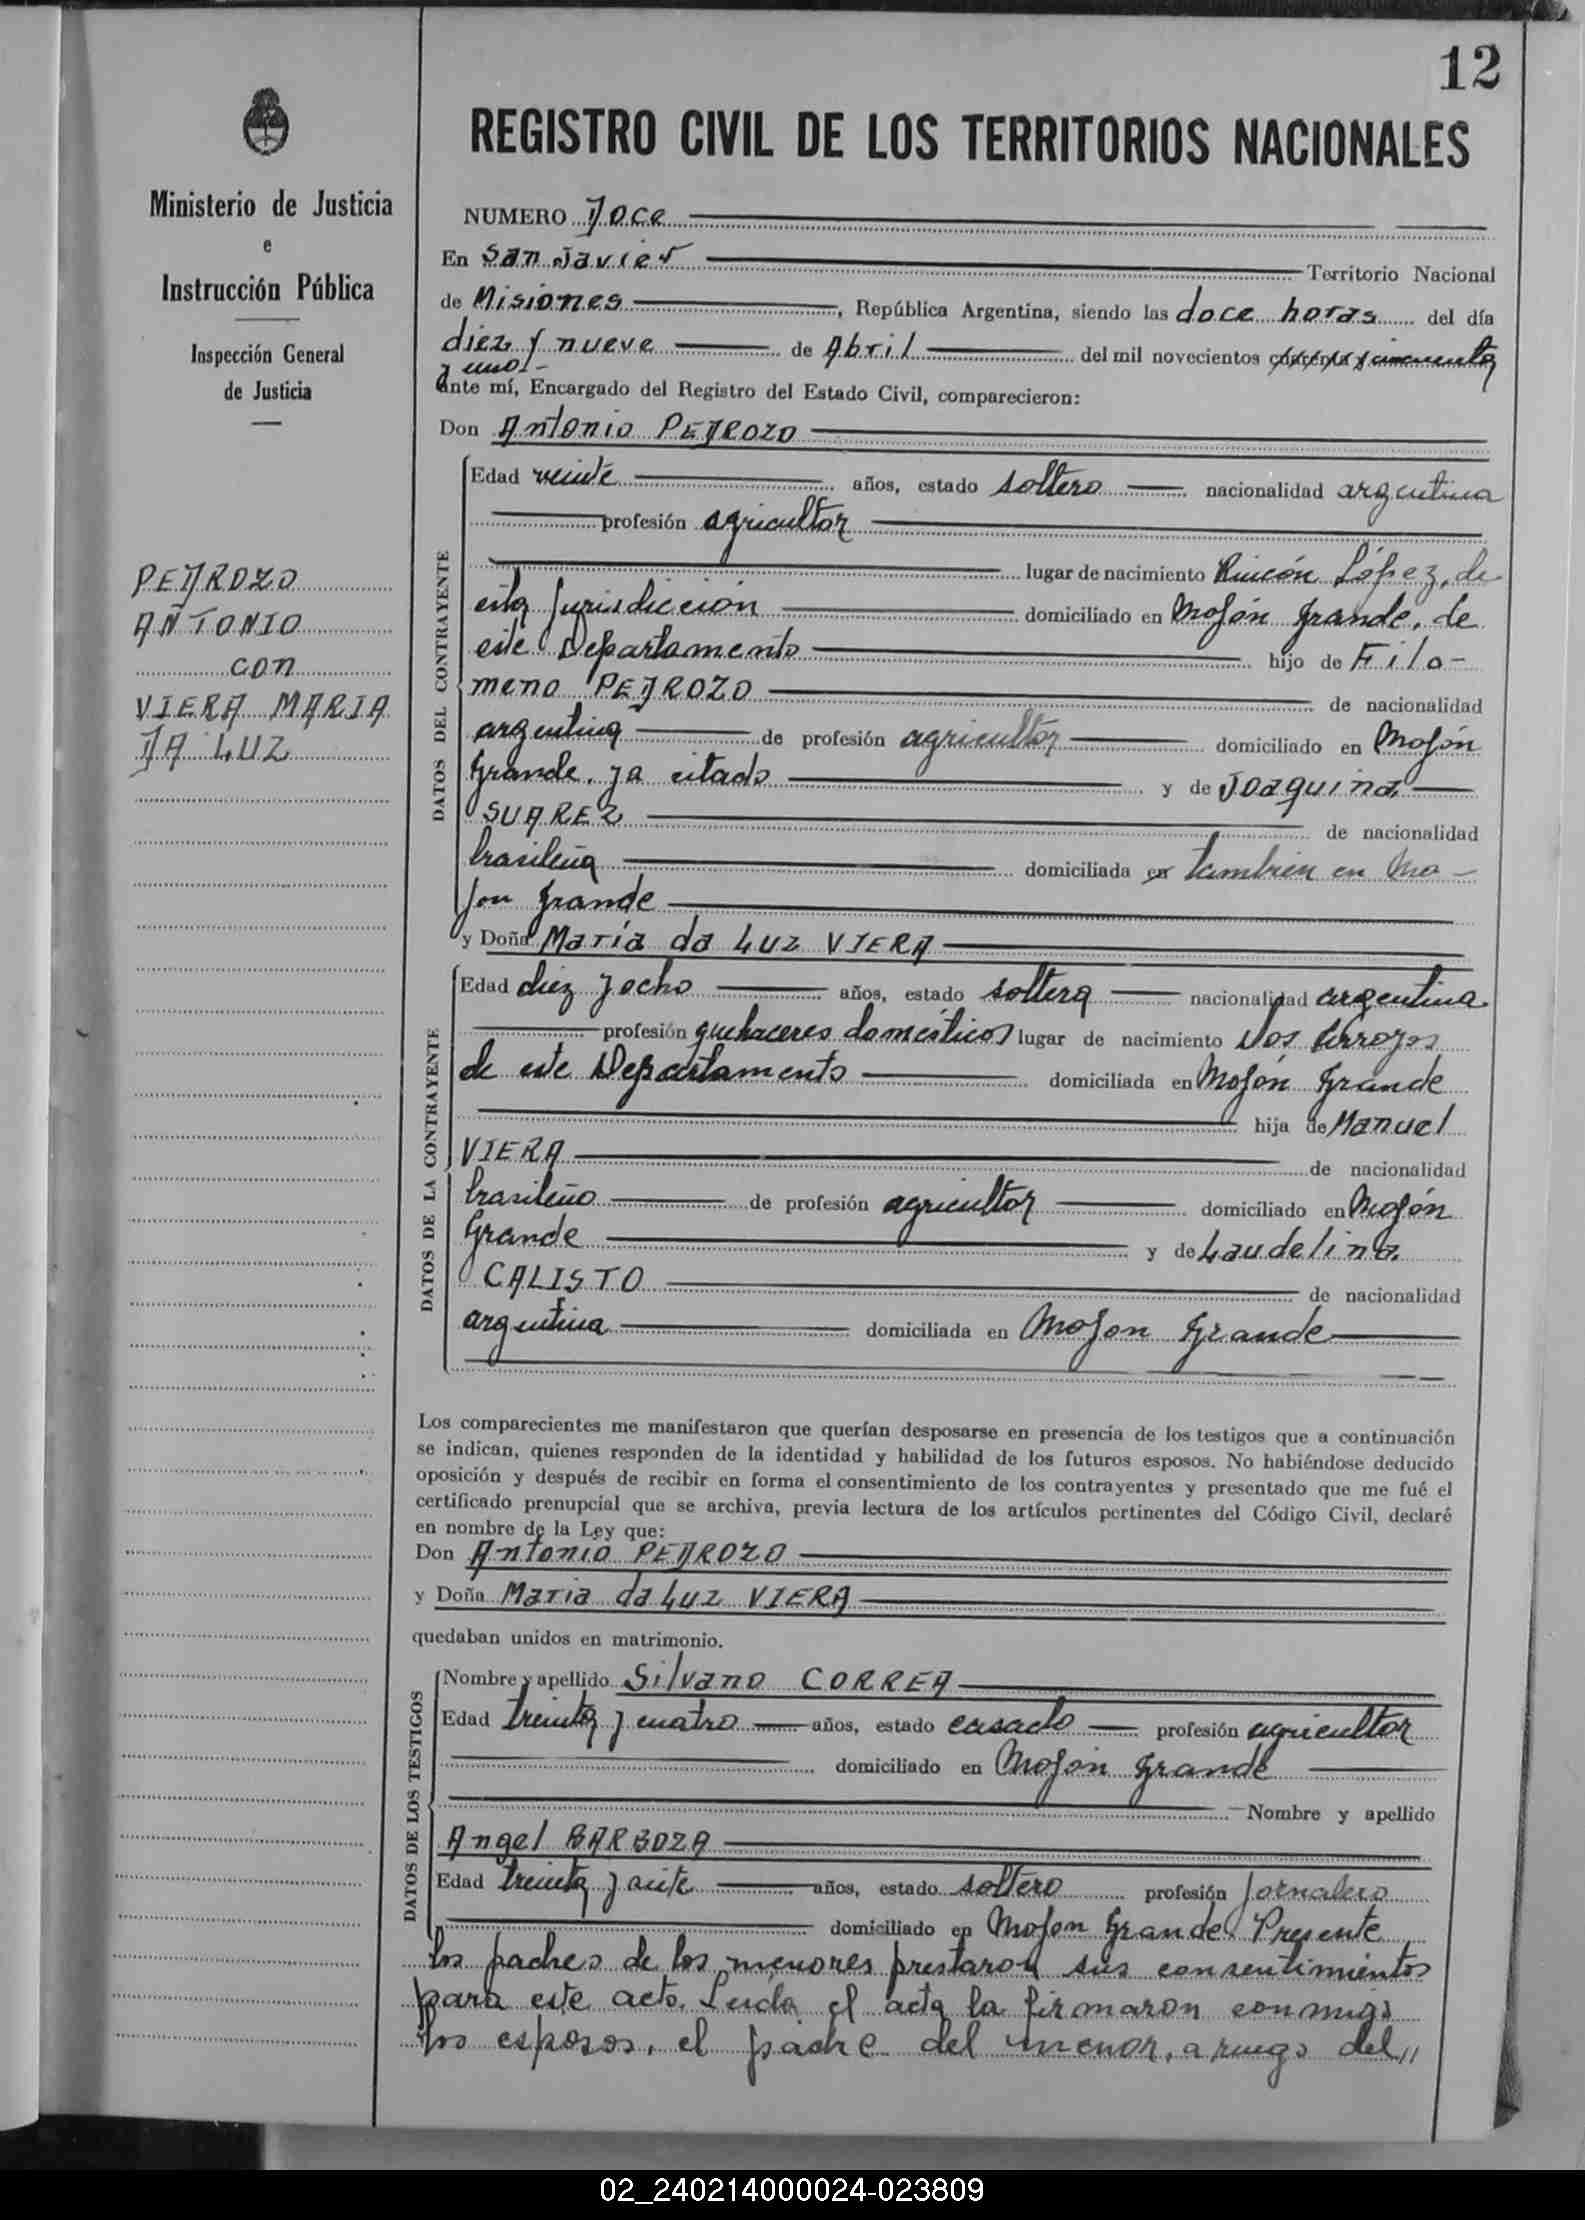 12
REGISTRO CIVIL DE LOS TERRITORIOS NACIONALES
Ministerio de Justicia
e
Instrucción Pública
Inspección General
de Justicia
PEDROZO
ANTONIO
con
VIERA MARIA
DA LUZ
NUMERO Doce
En San Javier Territorio Nacional
de Misiones, República Argentina, siendo las doce horas del día
diez y nueve de Abril del mil novecientos cincuenta
y uno.-
ante mí, Encargado del Registro del Estado Civil, comparecieron:
Don Antonio PEDROZO
DATOS DEL CONTRAYENTE
Edad veinte años, estado soltero nacionalidad argentina
profesión agricultor
lugar de nacimiento Rincón López, de
esta Jurisdicción domiciliado en Mojón Grande, de
este Departamento hijo de Filo-
meno PEDROZO de nacionalidad
argentina de profesión agricultor domiciliado en Mojón
Grande, ya citado y de Joaquina
SUAREZ de nacionalidad
brasileña domiciliada en tambien en Mo-
jon Grande
y Doña María da Luz VIERA
DATOS DE LA CONTRAYENTE
Edad diez y ocho años, estado soltera nacionalidad argentina
profesión quehaceres domésticos lugar de nacimiento Dos Arroyos
de este Departamento domiciliada en Mojón Grande
hija de Manuel
VIERA de nacionalidad
brasileño de profesión agricultor domiciliado en Mojón
Grande y de Laudelina
CALISTO de nacionalidad
argentina domiciliada en Mojon Grande
Los comparecientes me manifestaron que querían desposarse en presencia de los testigos que a continuación
se indican, quienes responden de la identidad y habilidad de los futuros esposos. No habiéndose deducido
oposición y después de recibir en forma el consentimiento de los contrayentes y presentado que me fué el
certificado prenupcial que se archiva, previa lectura de los artículos pertinentes del Código Civil, declaré
en nombre de la Ley que:
Don Antonio PEDROZO
y Doña Maria da Luz VIERA
quedaban unidos en matrimonio.
DATOS DE LOS TESTIGOS
Nombre y apellido Silvano CORREA
Edad treinta y cuatro años, estado casado profesión agricultor
domiciliado en Mojón Grande
Nombre y apellido
Angel BARBOZA
Edad treinta y siete años, estado soltero profesión Jornalero
domiciliado en Mojon Grande. Presente
los padres de los menores prestaron sus consentimientos
para este acto. Leida el acta la firmaron conmigo
los esposos, el padre del menor, a ruego del //
02_240214000024-023809